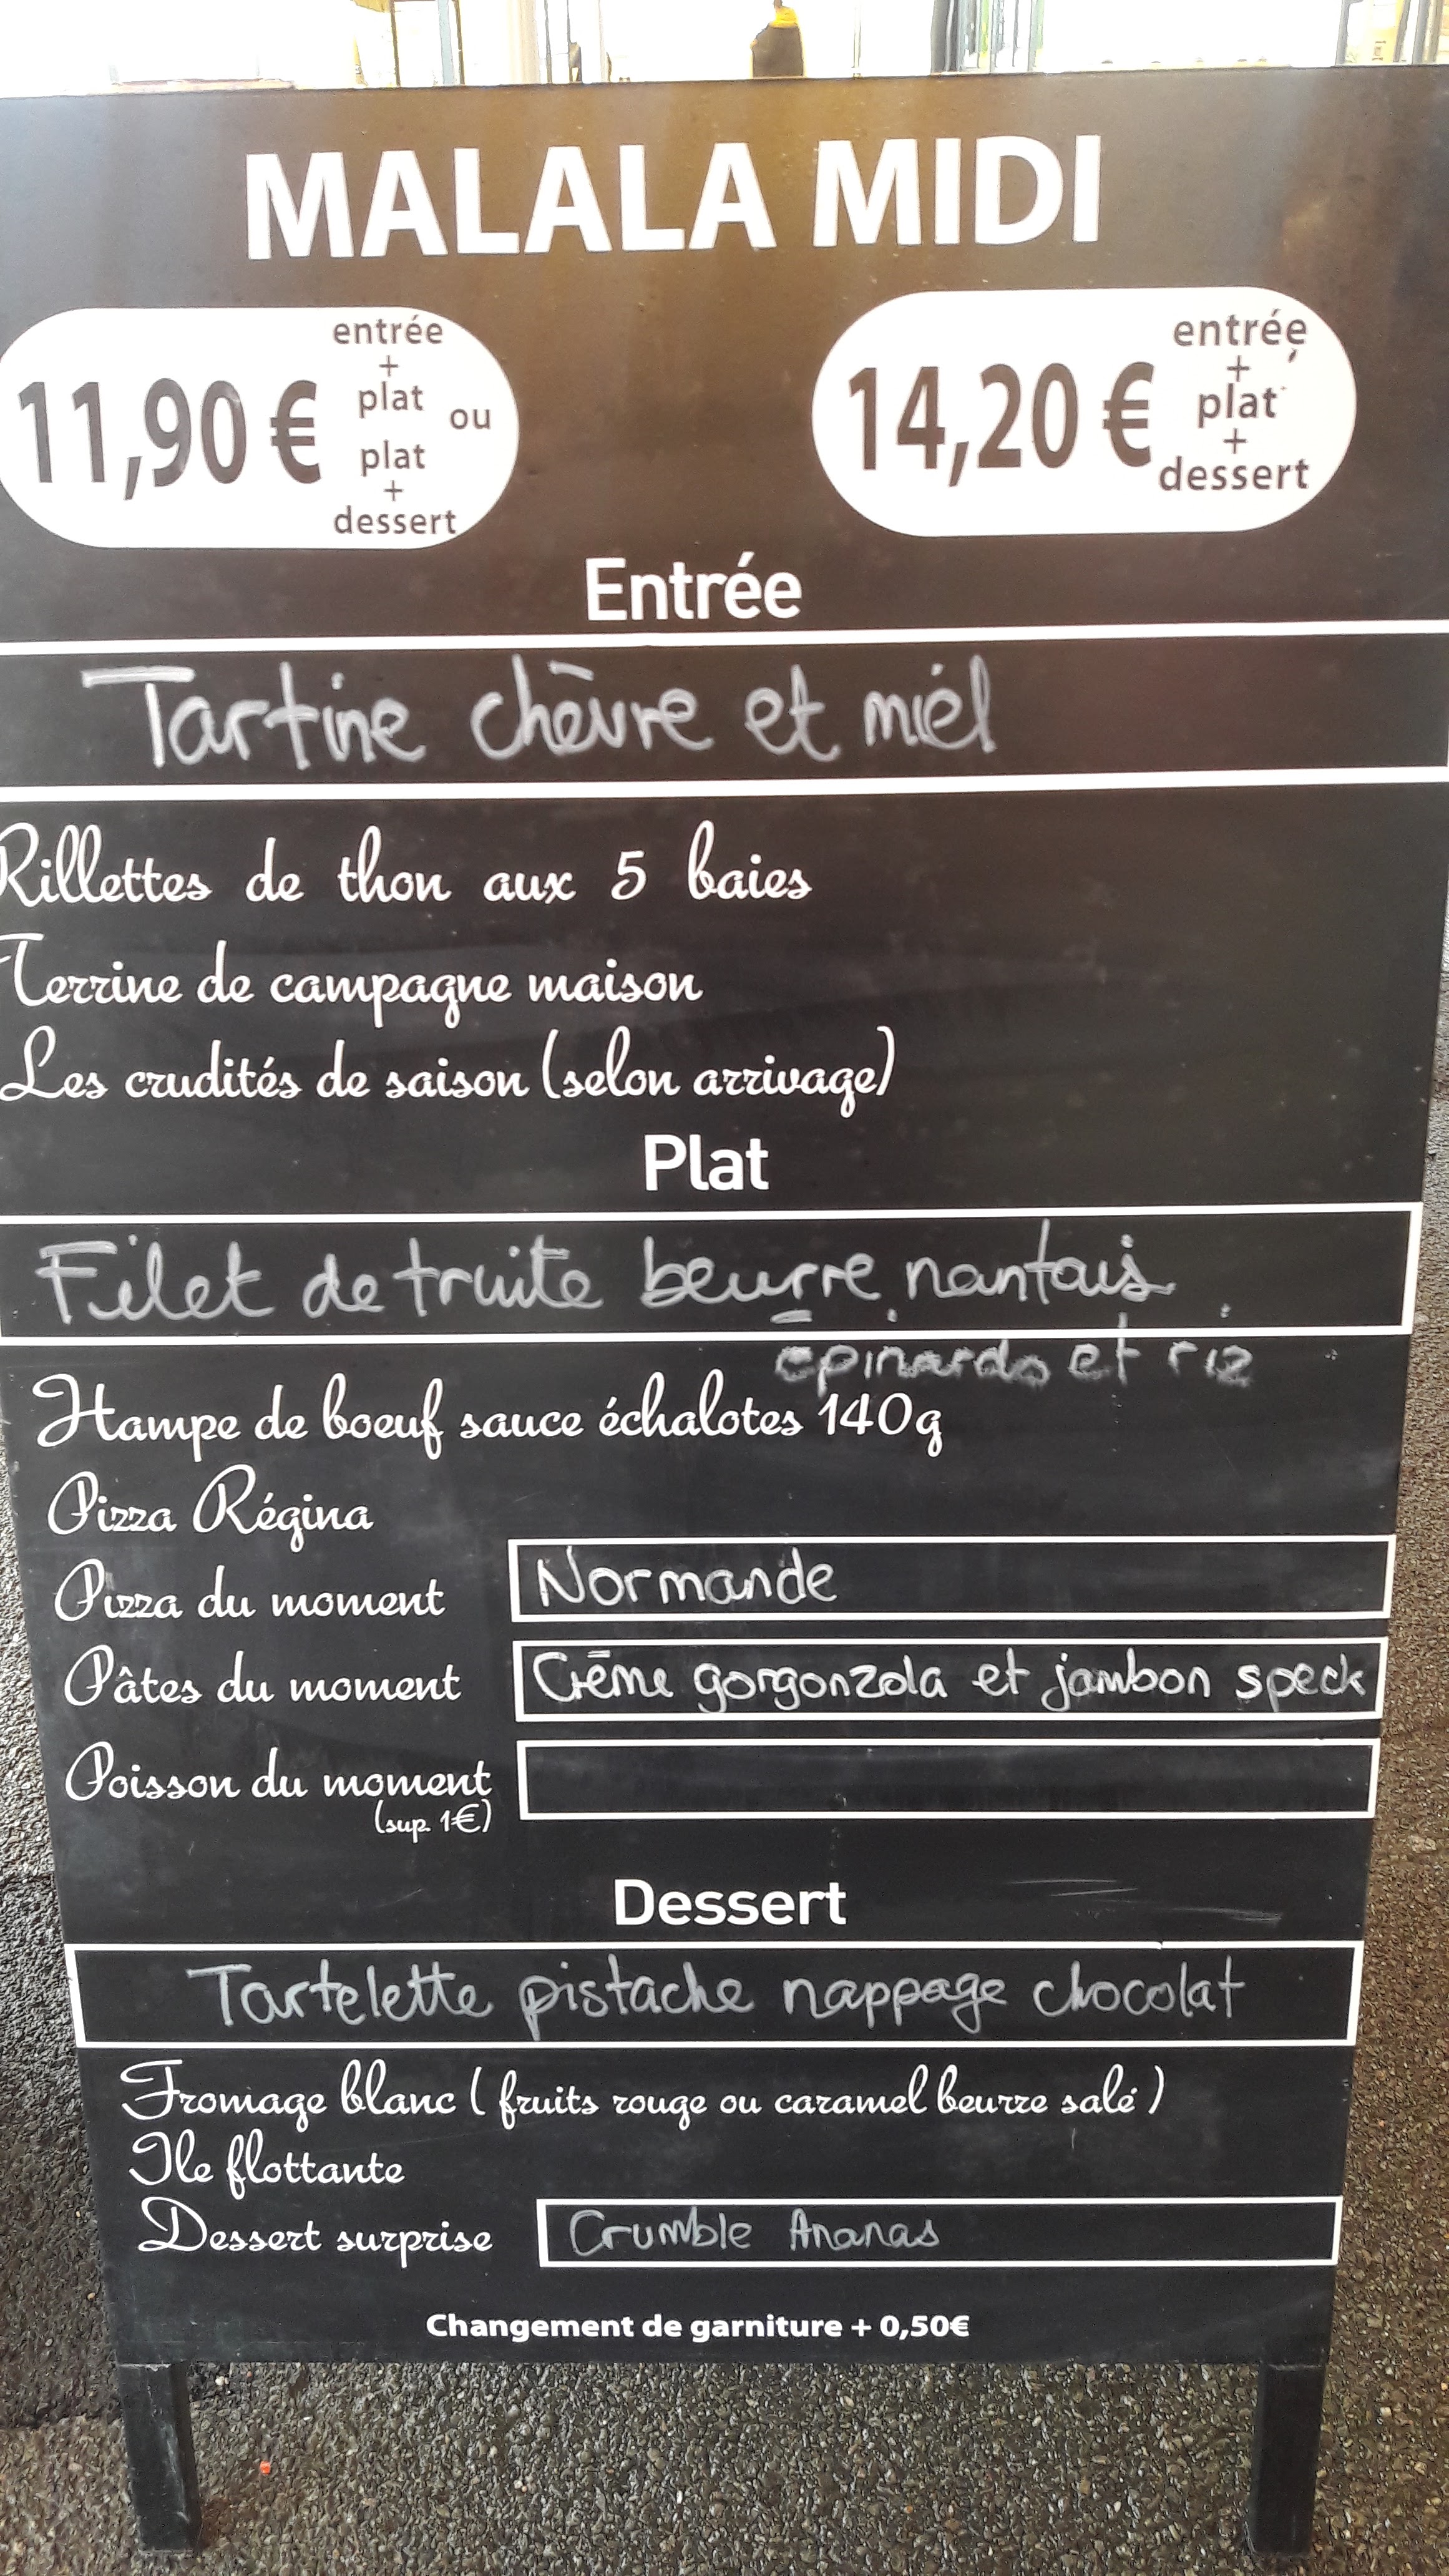 MALALA MIDI
11,90 €
entrée
+
plat
ou
plat
+
dessert
14,20 €
entrée
+
plat
+
dessert
Entrée
Tartine chèvre et miel
Rillettes de thon aux 5 baies
Terrine de campagne maison
Les crudités de saison (selon arrivage)
Plat
Filet de truite beurre nantais
épinards et riz
Hampe de boeuf sauce échalotes 140g
Pizza Régina
Pizza du moment Normande
Pâtes du moment Crème gorgonzola et jambon speck
Poisson du moment
(sup. 1€)
Dessert
Tartelette pistache nappage chocolat
Fromage blanc ( fruits rouge ou caramel beurre salé )
Ile flottante
Dessert surprise Crumble Ananas
Changement de garniture + 0,50€